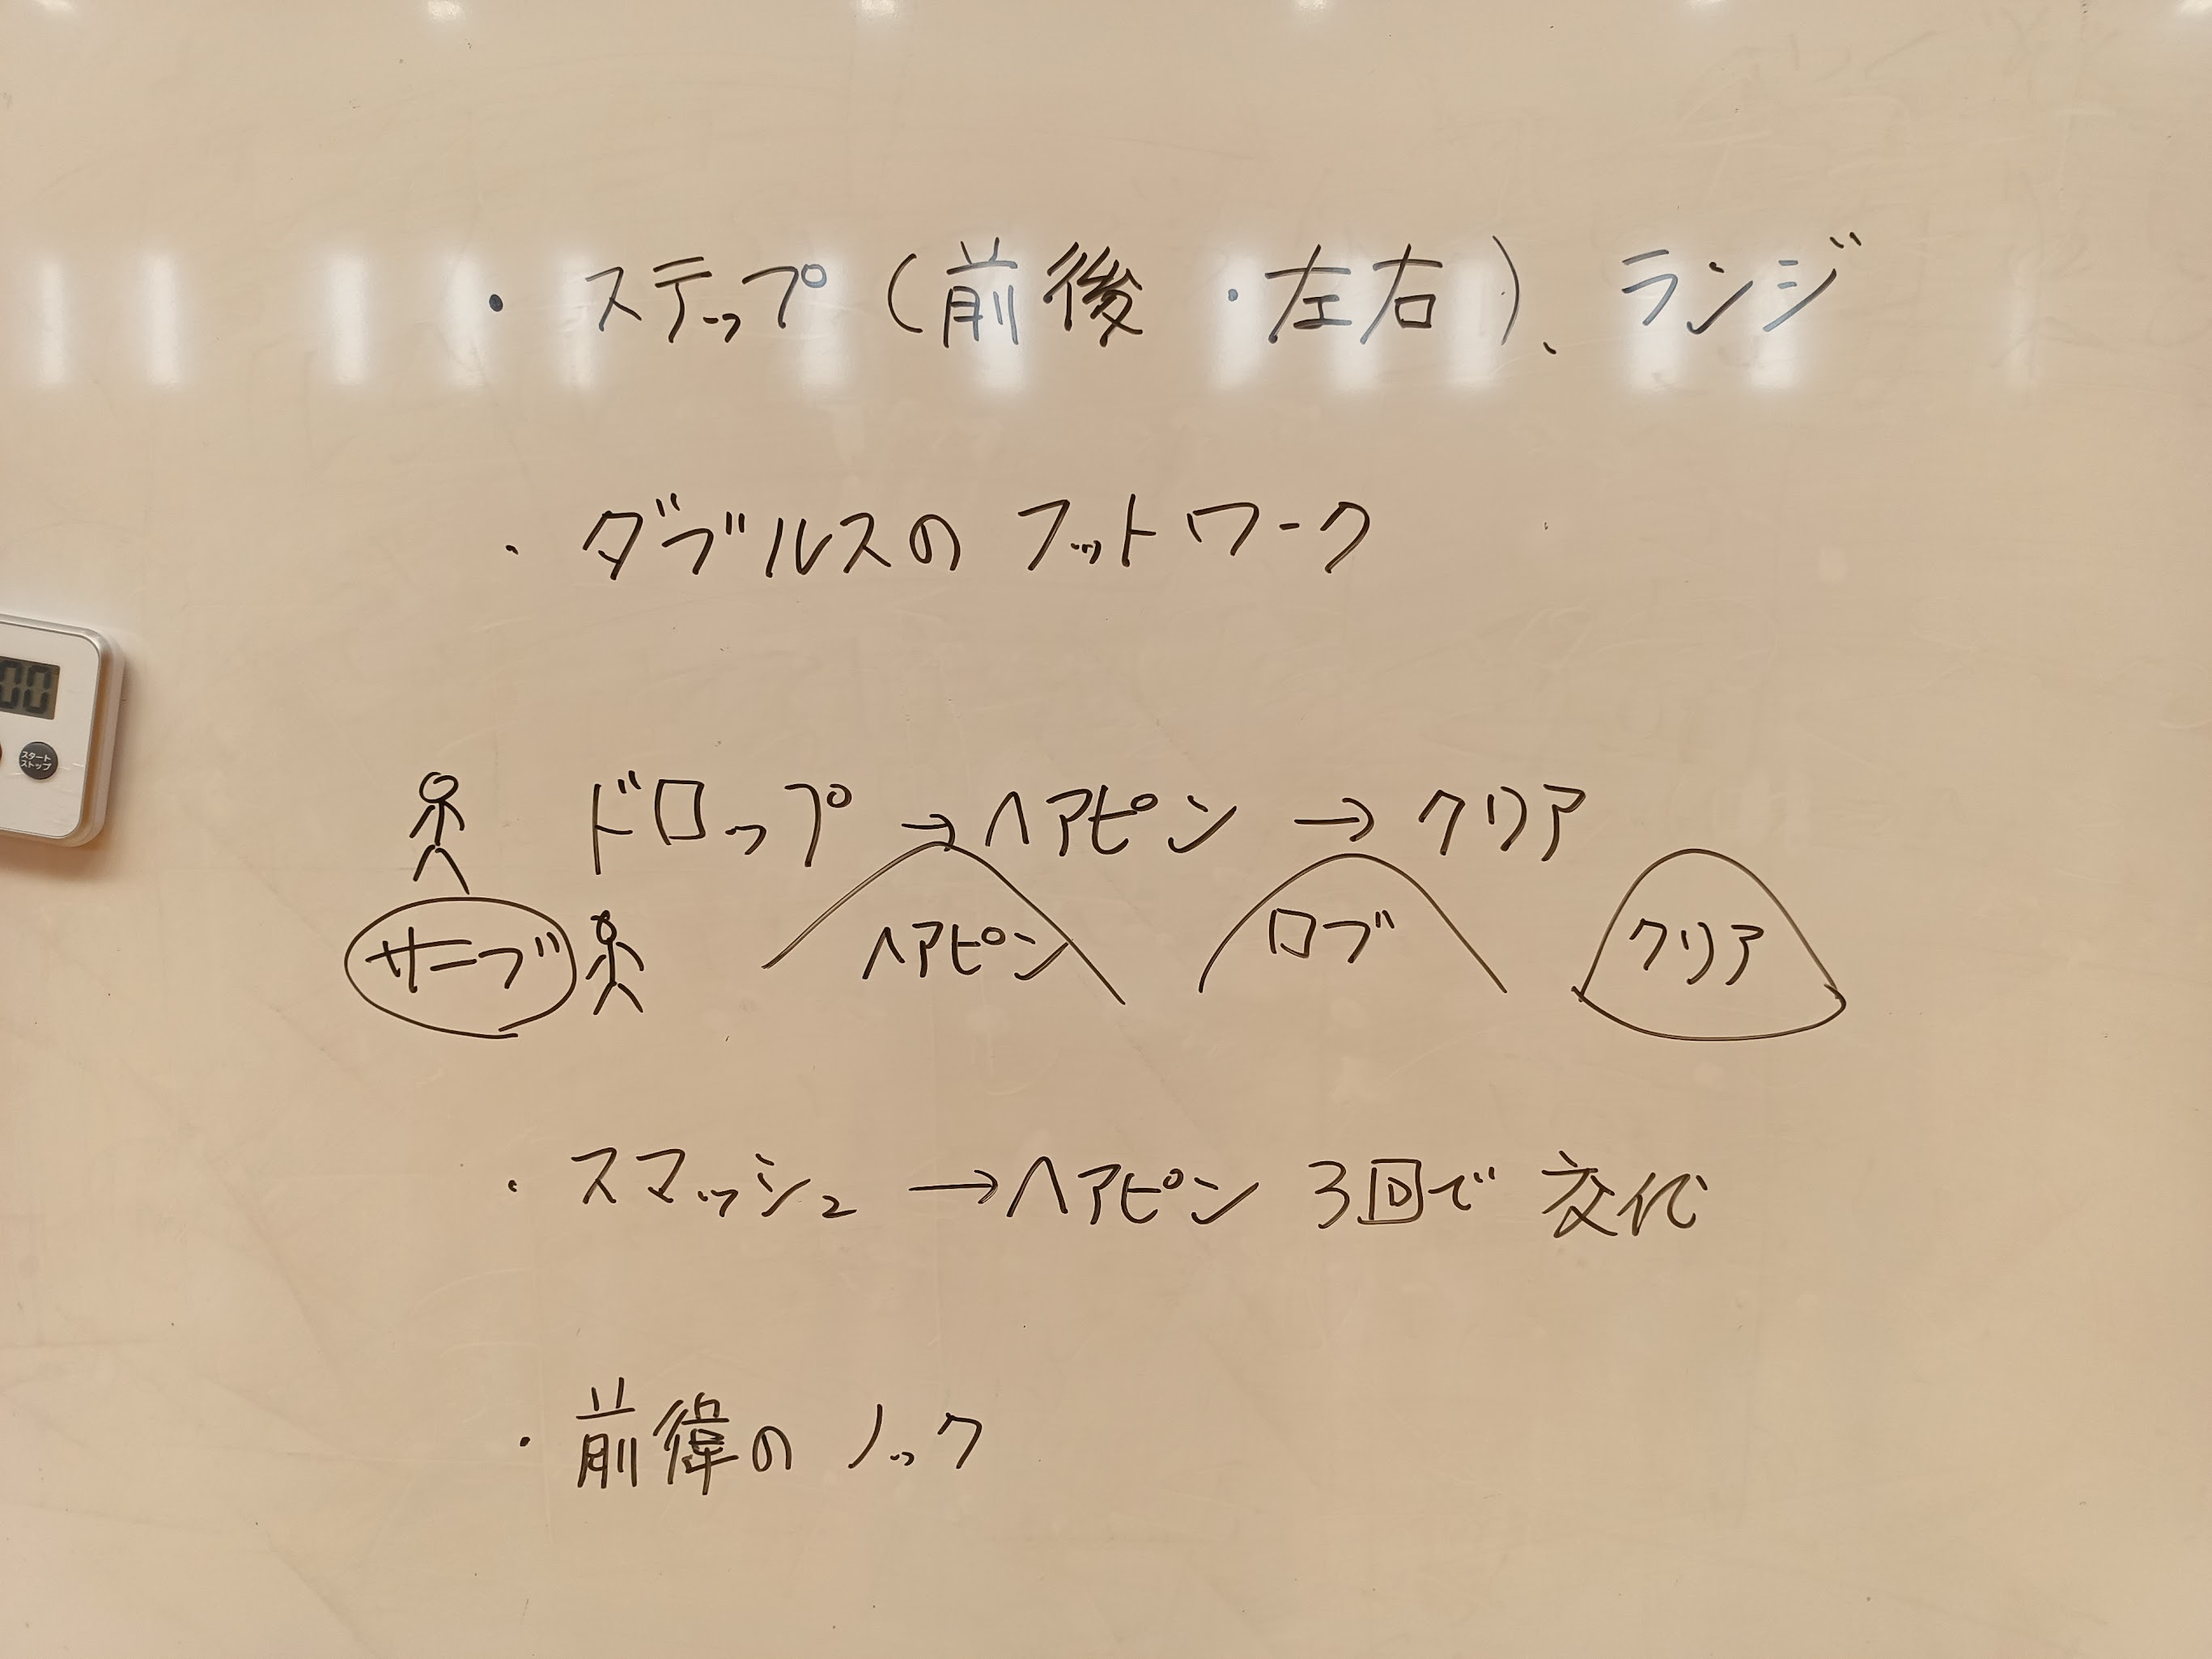 ・ステップ(前後・左右)、ランジ
・ダブルスのフットワーク
ドロップ→ヘアピン→クリア
サーブ ヘアピン ロブ クリア
・スマッシュ→ヘアピン 3回で交代
・前衛のノック
00
スタート
ストップ